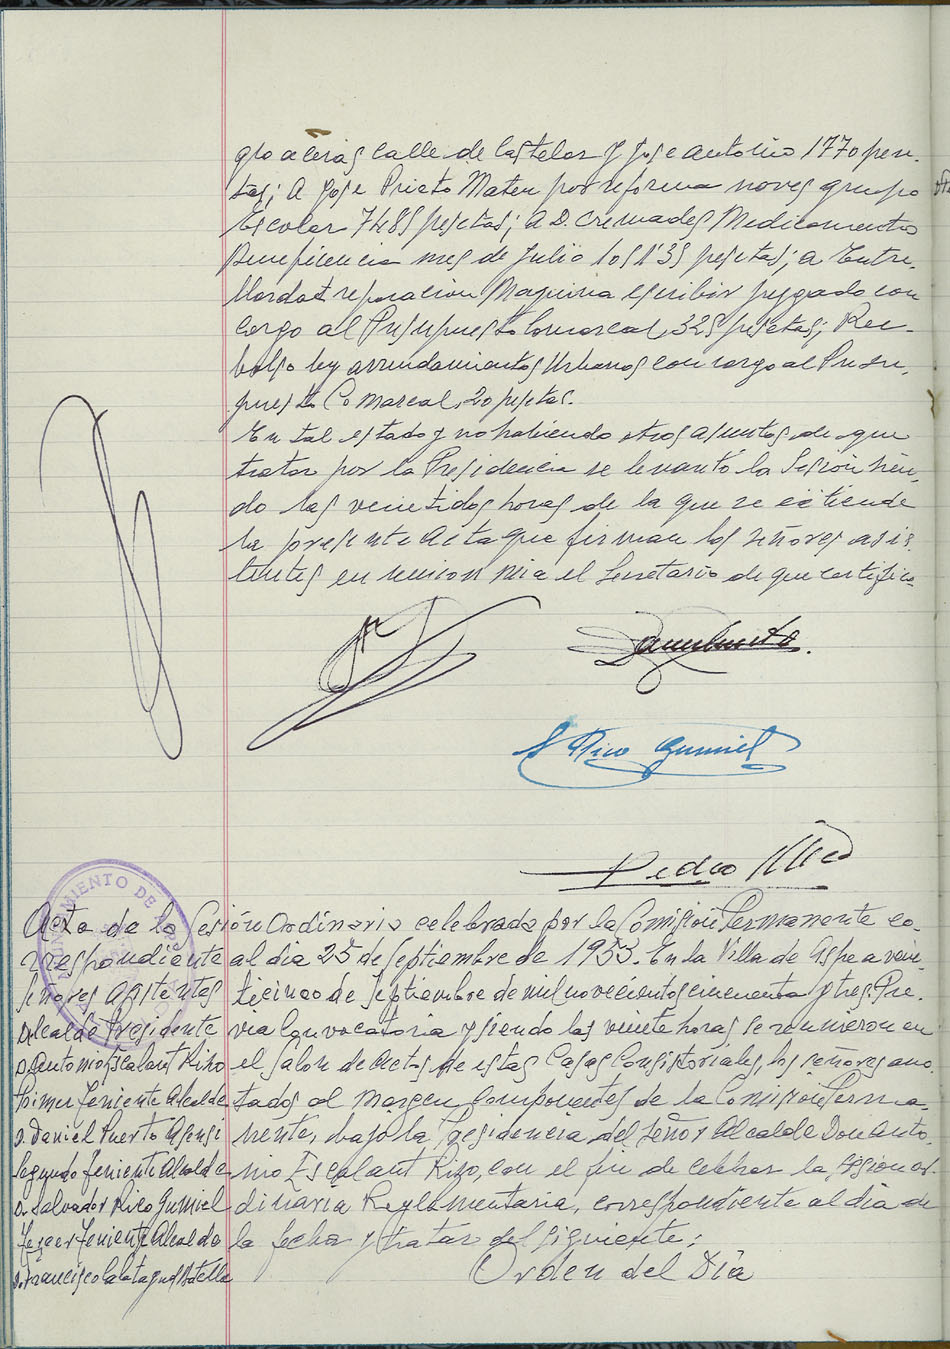 gro aceras calle de Castelar y Jose antonio 1770 pese-
tas; A Jose Prieto Mateu por reforma noves grupo
Escolar 7485 pesetas; a D. Cremades Medicamentos
Beneficencia mes de Julio 1051'35 pesetas; a Entre-
reparacion Maquina escribir pagado con
cargo al Presupuesto Comarcal, 325 pesetas; Reem-
bolso ley arrendamientos Urbanos con cargo al Presu-
puesto Comarcal, 20 pesetas.
En tal estado y no habiendo otros asuntos de que
tratar por la Presidencia se levantó la Sesión sien-
do las veintidos horas de la que se extiende
la presente Acta que firman los señores asis-
tentes en union mia el Secretario de que certifico
S Rico Gumiel
Pedro
AYUNTAMIENTO DE
Acta de la Sesión Ordinaria celebrada por la Comision Permanente co-
rrespondiente al dia 25 de Septiembre de 1953. En la Villa de Aspe a vein-
ticinco de Septiembre de mil novecientos cincuenta y tres. Pre-
via Convocatoria y siendo las veinte horas se reunieron en
el Salon de Actos de estas Casas Consistoriales, los señores ano-
tados al margen componentes de la Comision Perma-
nente, bajo la Presidencia del Señor Alcalde Don Anto-
nio Escalant Rizo, con el fin de celebrar la sesion or-
dinaria Reglamentaria, correspondiente al dia de
la fecha y tratar del siguiente:
Orden del Dia
Señores Asistentes
Alcalde Presidente
D. Antonio Escalant Rizo
Primer Teniente Alcalde
D. Daniel Puerto Asensi
Segundo Teniente Alcalde
D. Salvador Rico Gumiel
Tercer Teniente Alcalde
D. Francisco Calatayud Botella